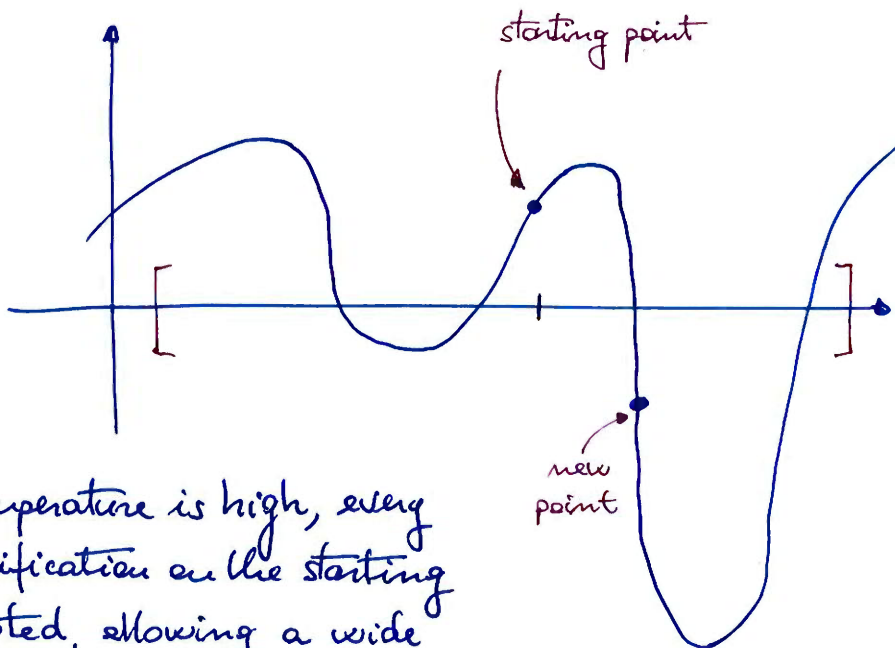 starting point
new
point
perature is high, every
ification on the starting
ted, allowing a wide